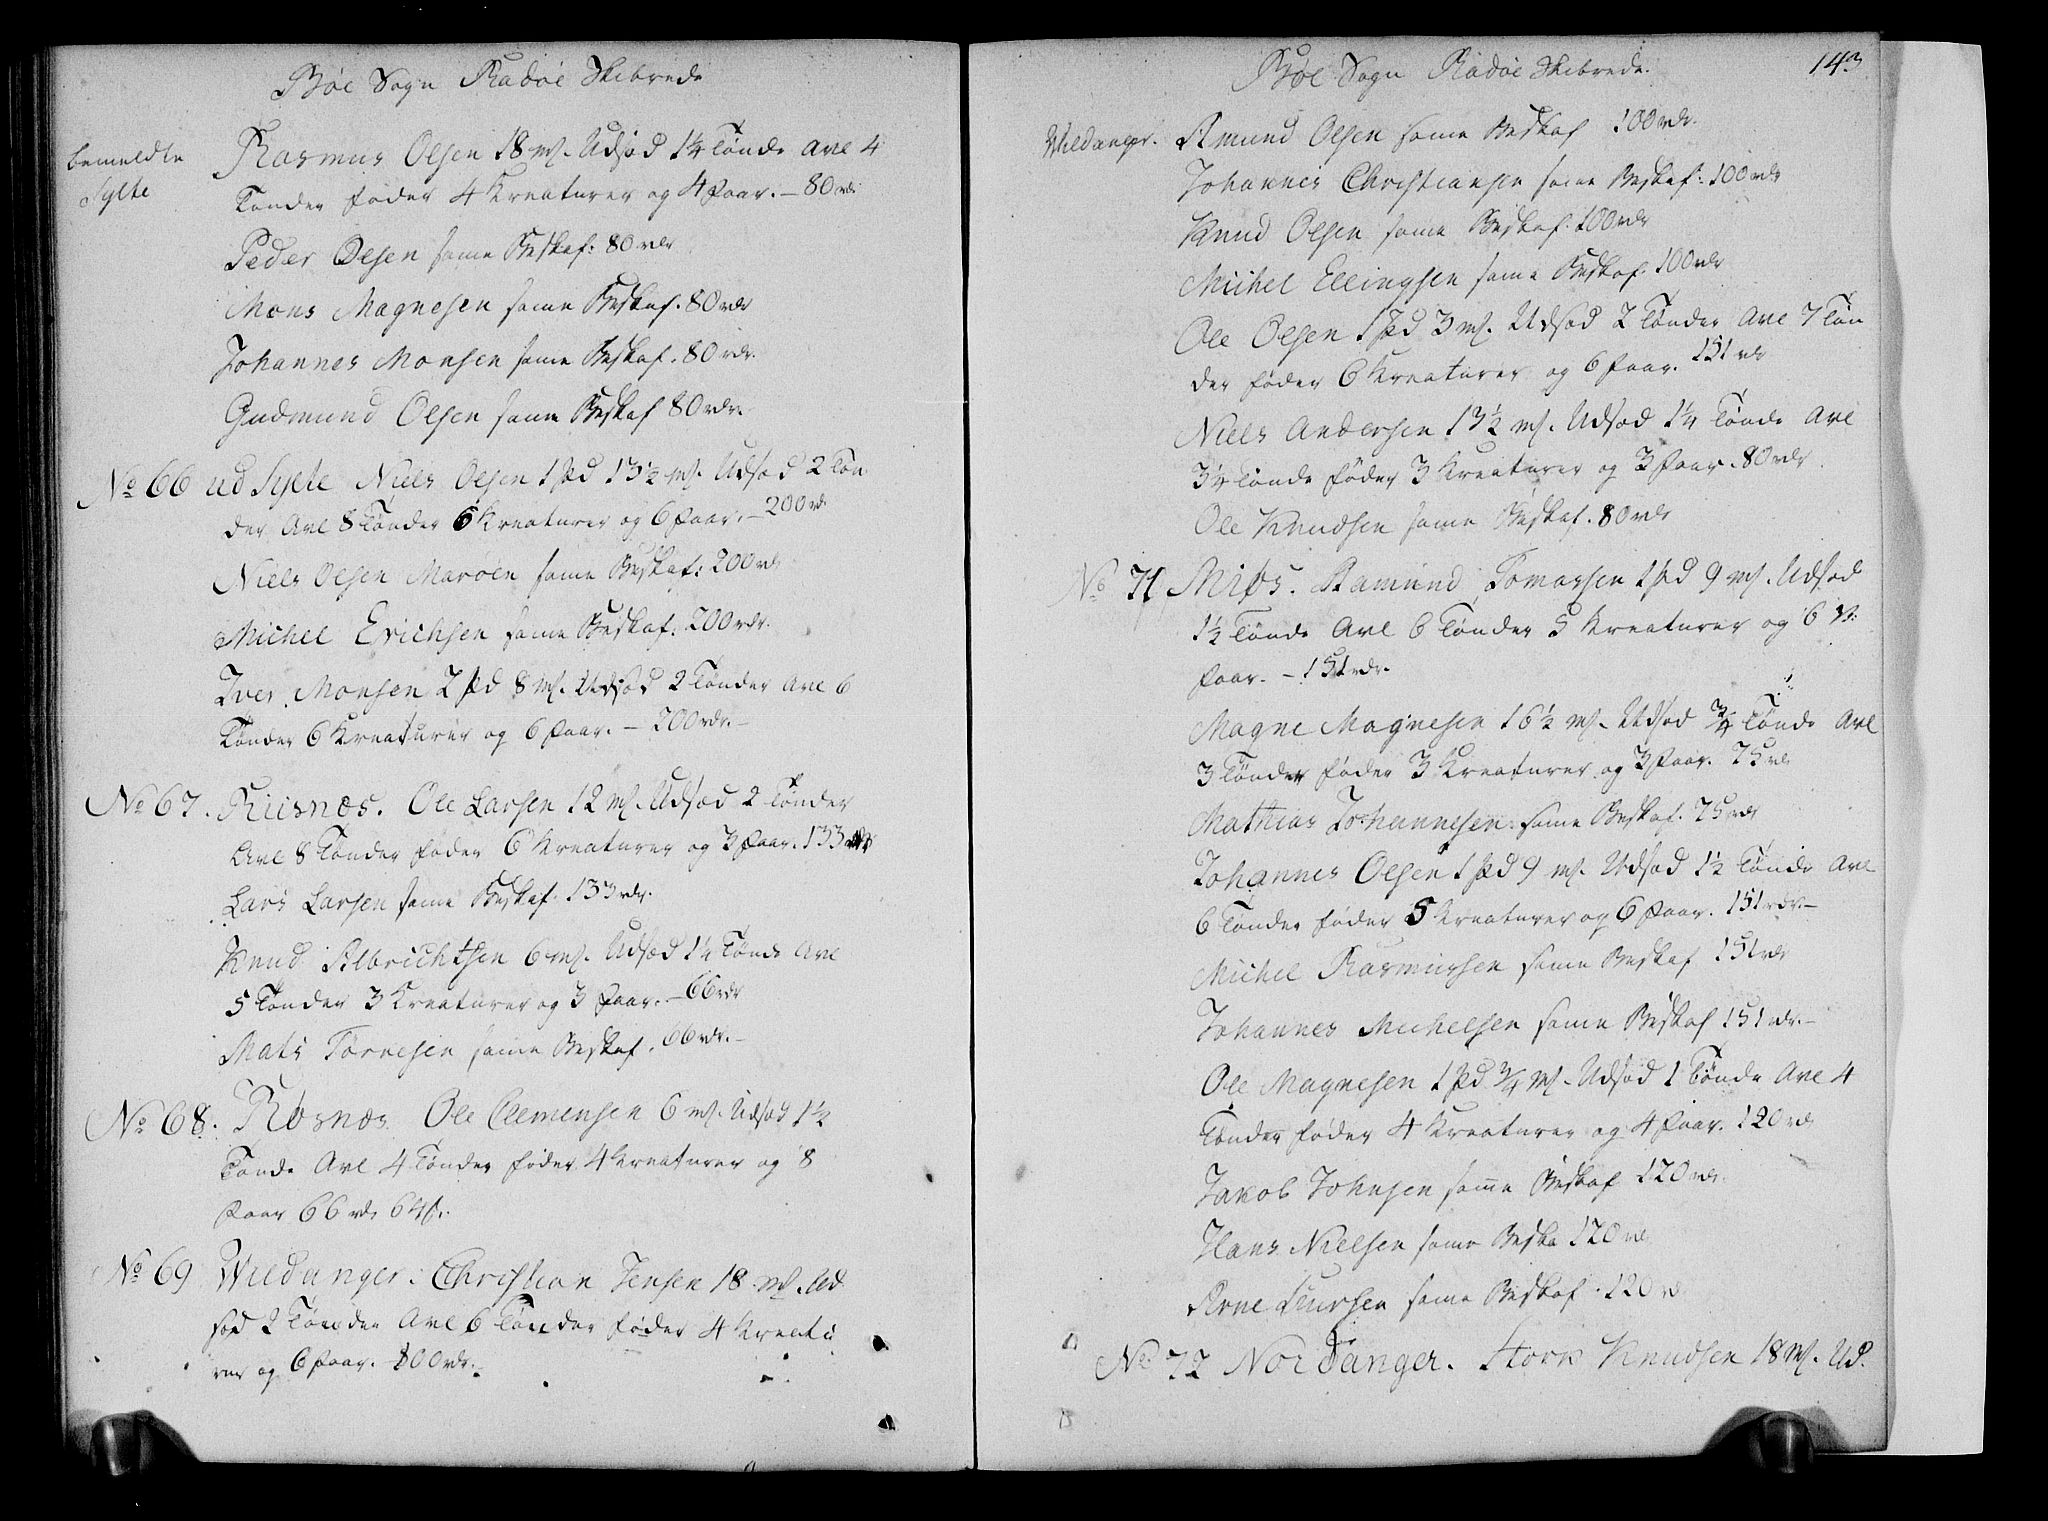 Bøe Sogn Radøe Skibrede
bemeldte
Sylte
Rasmus Olsen 18 mk. Udsæd 1¼ Tønde Avl 4
Tønder føder 4 Kreaturer og 4 Faar. – 80 rdr
Peder Olsen same Beskaf: 80 rdr
Mons Magnesen same Beskaf. 80 rdr
Johannes Monsen same Beskaf. 80 rdr.
Gudmund Olsen same Beskaf 80 rdr.
No 66 ud Sylte Niels Olsen 1 pd 13½ mk. Udsæd 2 Tøn
der Avl 8 Tønder 6 Kreaturer og 6 Faar. – 200 rdr
Niels Olsen Marøen same Beskaf: 200 rdr
Michel Erichsen same Beskaf. 200 rdr.
Iver Monsen 2 pd 8 mk. Udsæd 2 Tønder Avl 6
Tønder 6 Kreaturer og 6 Faar. – 200 rdr. –
No 67. Riisnæs. Ole Larsen 12 mk. Udsæd 2 Tønder
Avl 8 Tønder føder 6 Kreaturer og 3 Faar. 133 rdr
Lars Larsen same Beskaf. 133 rdr.
Knud Albrichtsen 6 mk. Udsæd 1¼ Tønde Avl
5 Tønder 3 Kreaturer og 3 Faar. – 66 rdr
Mats Tørresen same Beskaf. 66 rdr. –
No 68. Rosnæs Ole Clemensen 6 mk. Udsæd 1½
Tønde Avl 4 Tønder føder 4 Kreaturer og 8
Faar 66 rdr 64 s.
No 69 Wildanger. Christian Jensen 18 mk. Ud
sæd 2 Tønder Avl 6 Tønder føder 4 Kreatu
rer og 6 Faar. 100 rdr. –
Bøe Sogn Radøe Skibrede. 143
Wildanger. Amund Olsen same Beskaf 100 rdr.
Johannes Christiansen same Beskaf: 100 rdr
Knud Olsen same Beskaf. 100 rdr
Michel Ellingsen same Beskaf. 100 rdr
Ole Olsen 1 pd 3 mk. Udsæd 2 Tønder Avl 7 Tøn
der føder 6 Kreaturer og 6 Faar. 151 rdr
Niels Andersen 13½ mk. Udsæd 1¼ Tønde Avl
3¼ Tønde føder 3 Kreaturer og 3 Faar. 80 rdr
Ole Knudsen same Beskaf. 80 rdr
No 71 Miøs. Ramund Tomassen 1 pd 9 mk. Udsæd
1½ Tønde Avl 6 Tønder 5 Kreaturer og 6
Faar. – 151 rdr.
Magne Magnesen 16½ mk. Udsæd ¾ Tønde Avl
3 Tønder føder 3 Kreaturer og 3 Faar. 75 rdr
Mathias Johannesen same Beskaf. 75 rdr
Johannes Olsen 1 pd 9 mk. Udsæd 1½ Tønde Avl
6 Tønder føder 5 Kreaturer og 6 Faar. 151 rdr. –
Michel Rasmussen same Beskaf 151 rdr
Johannes Michelsen same Beskaf 151 rdr. –
Ole Magnesen 1 pd ¾ mk. Udsæd 1 Tønde Avl 4
Tønder føder 4 Kreaturer og 4 Faar. 120 rdr
Jakob Johnsen same Beskaf 120 rdr.
Hans Nielsen same Beska 120 rdr
Arne same Beskaf. 120 rd
No. 72 Nordanger. Knudsen 18 mk. Ud.